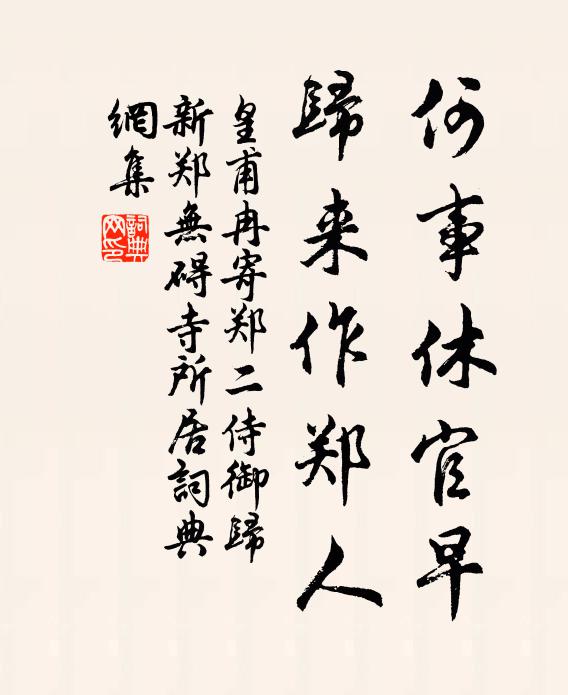 何事休官早
歸来作郑人
皇甫冉寄郑二侍御歸
新郑無碍寺所居詞典
網集
詞典
网印